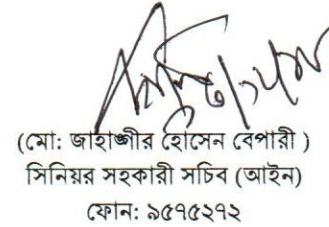 (মো: জাহাঙ্গীর হোসেন বেপারী )
সিনিয়র সহকারী সচিব (আইন)
ফোন: ৯৫৭৫২৭২